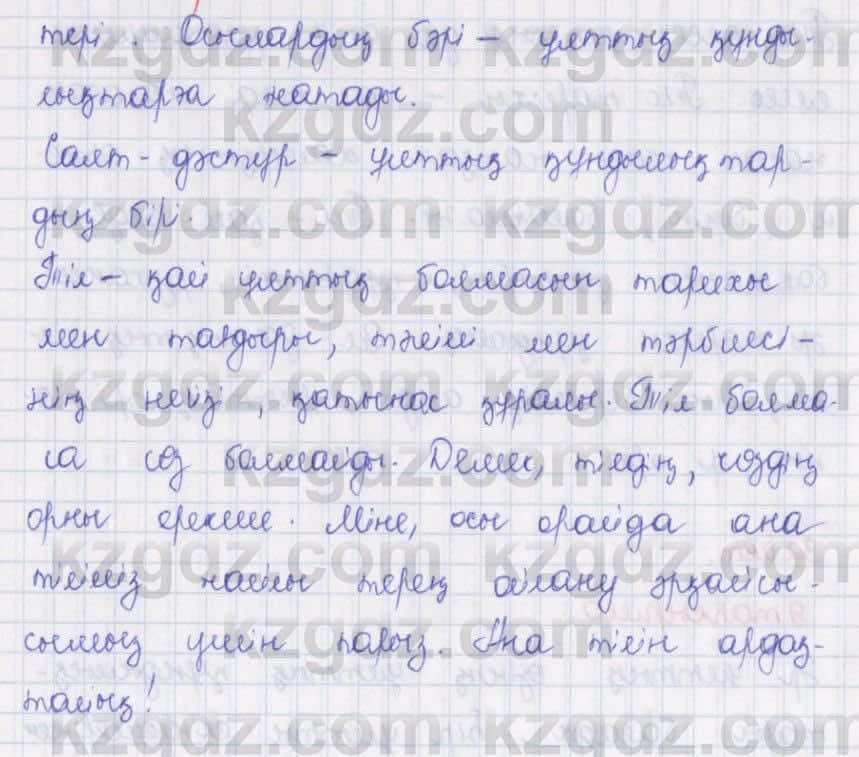 тері. Осылардың бәрі – ұлттық құнды-
лықтарға жатады.
Салт-дәстүр – ұлттық құндылықтар-
дың бірі.
Тіл – қай ұлттың болмасын тарихы
мен тағдыры, тәлімі мен тәрбиесі-
нің негізі, қатынас құралы. Тіл болма-
са сөз болмайды. Демек, тілдің, сөздің
орны ерекше. Міне, осы орайда ана
тіліміз жайлы терең ойлану әрқайсы-
сымыз үшін парыз. Ана тілін ардақ-
тайық!
kzgdz.com